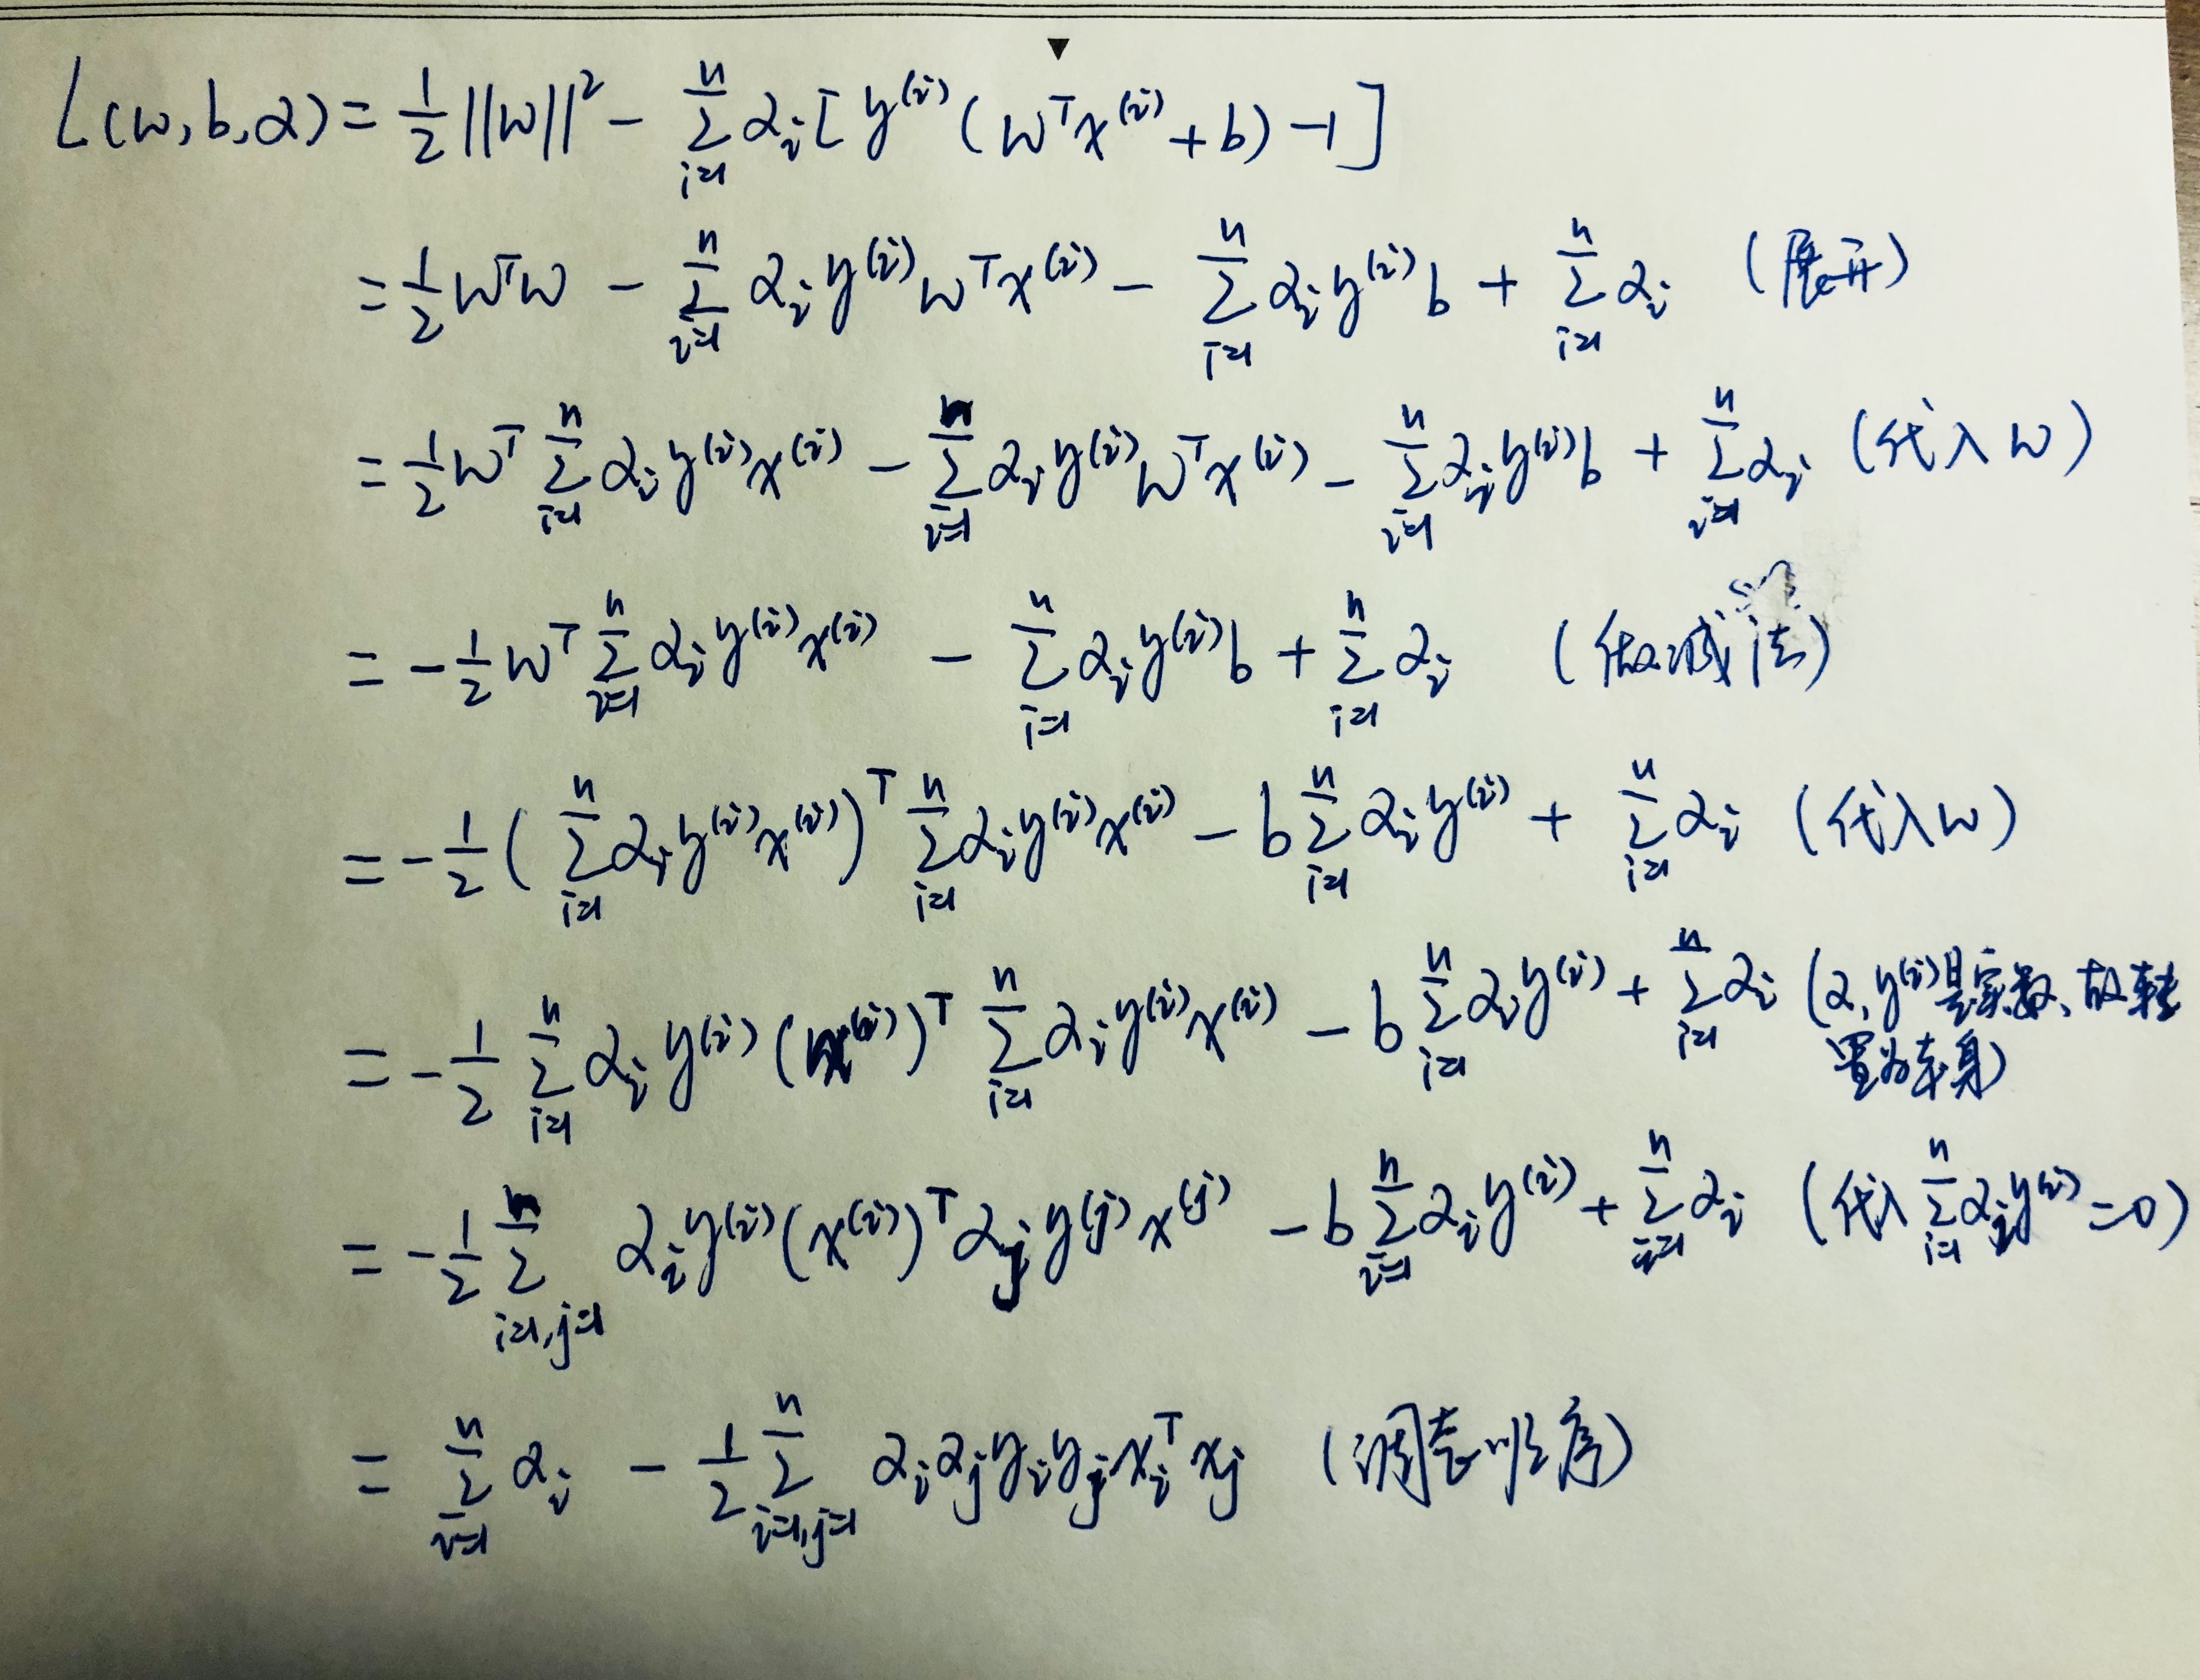 L(w,b,α) = 1/2 ||w||² - Σ_{i=1}^{n} α_i [ y^{(i)} (w^T x^{(i)} + b) - 1 ]
= 1/2 w^T w - Σ_{i=1}^{n} α_i y^{(i)} w^T x^{(i)} - Σ_{i=1}^{n} α_i y^{(i)} b + Σ_{i=1}^{n} α_i (展开)
= 1/2 w^T Σ_{i=1}^{n} α_i y^{(i)} x^{(i)} - Σ_{i=1}^{n} α_i y^{(i)} w^T x^{(i)} - Σ_{i=1}^{n} α_i y^{(i)} b + Σ_{i=1}^{n} α_i (代入 w)
= - 1/2 w^T Σ_{i=1}^{n} α_i y^{(i)} x^{(i)} - Σ_{i=1}^{n} α_i y^{(i)} b + Σ_{i=1}^{n} α_i (做减法)
= - 1/2 ( Σ_{i=1}^{n} α_i y^{(i)} x^{(i)} )^T Σ_{i=1}^{n} α_i y^{(i)} x^{(i)} - b Σ_{i=1}^{n} α_i y^{(i)} + Σ_{i=1}^{n} α_i (代入w)
= - 1/2 Σ_{i=1}^{n} α_i y^{(i)} (x^{(i)})^T Σ_{i=1}^{n} α_i y^{(i)} x^{(i)} - b Σ_{i=1}^{n} α_i y^{(i)} + Σ_{i=1}^{n} α_i (α, y^{(i)}是实数、故转
置为本身)
= - 1/2 Σ_{i=1,j=1}^{n} α_i y^{(i)} (x^{(i)})^T α_j y^{(j)} x^{(j)} - b Σ_{i=1}^{n} α_i y^{(i)} + Σ_{i=1}^{n} α_i (代入 Σ_{i=1}^{n} α_i y^{(i)} = 0)
= Σ_{i=1}^{n} α_i - 1/2 Σ_{i=1,j=1}^{n} α_i α_j y_i y_j x_i^T x_j (调整顺序)